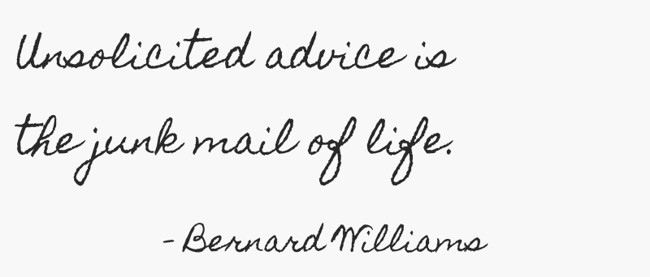 Unsolicited advice is
the junk mail of life.
- Bernard Williams